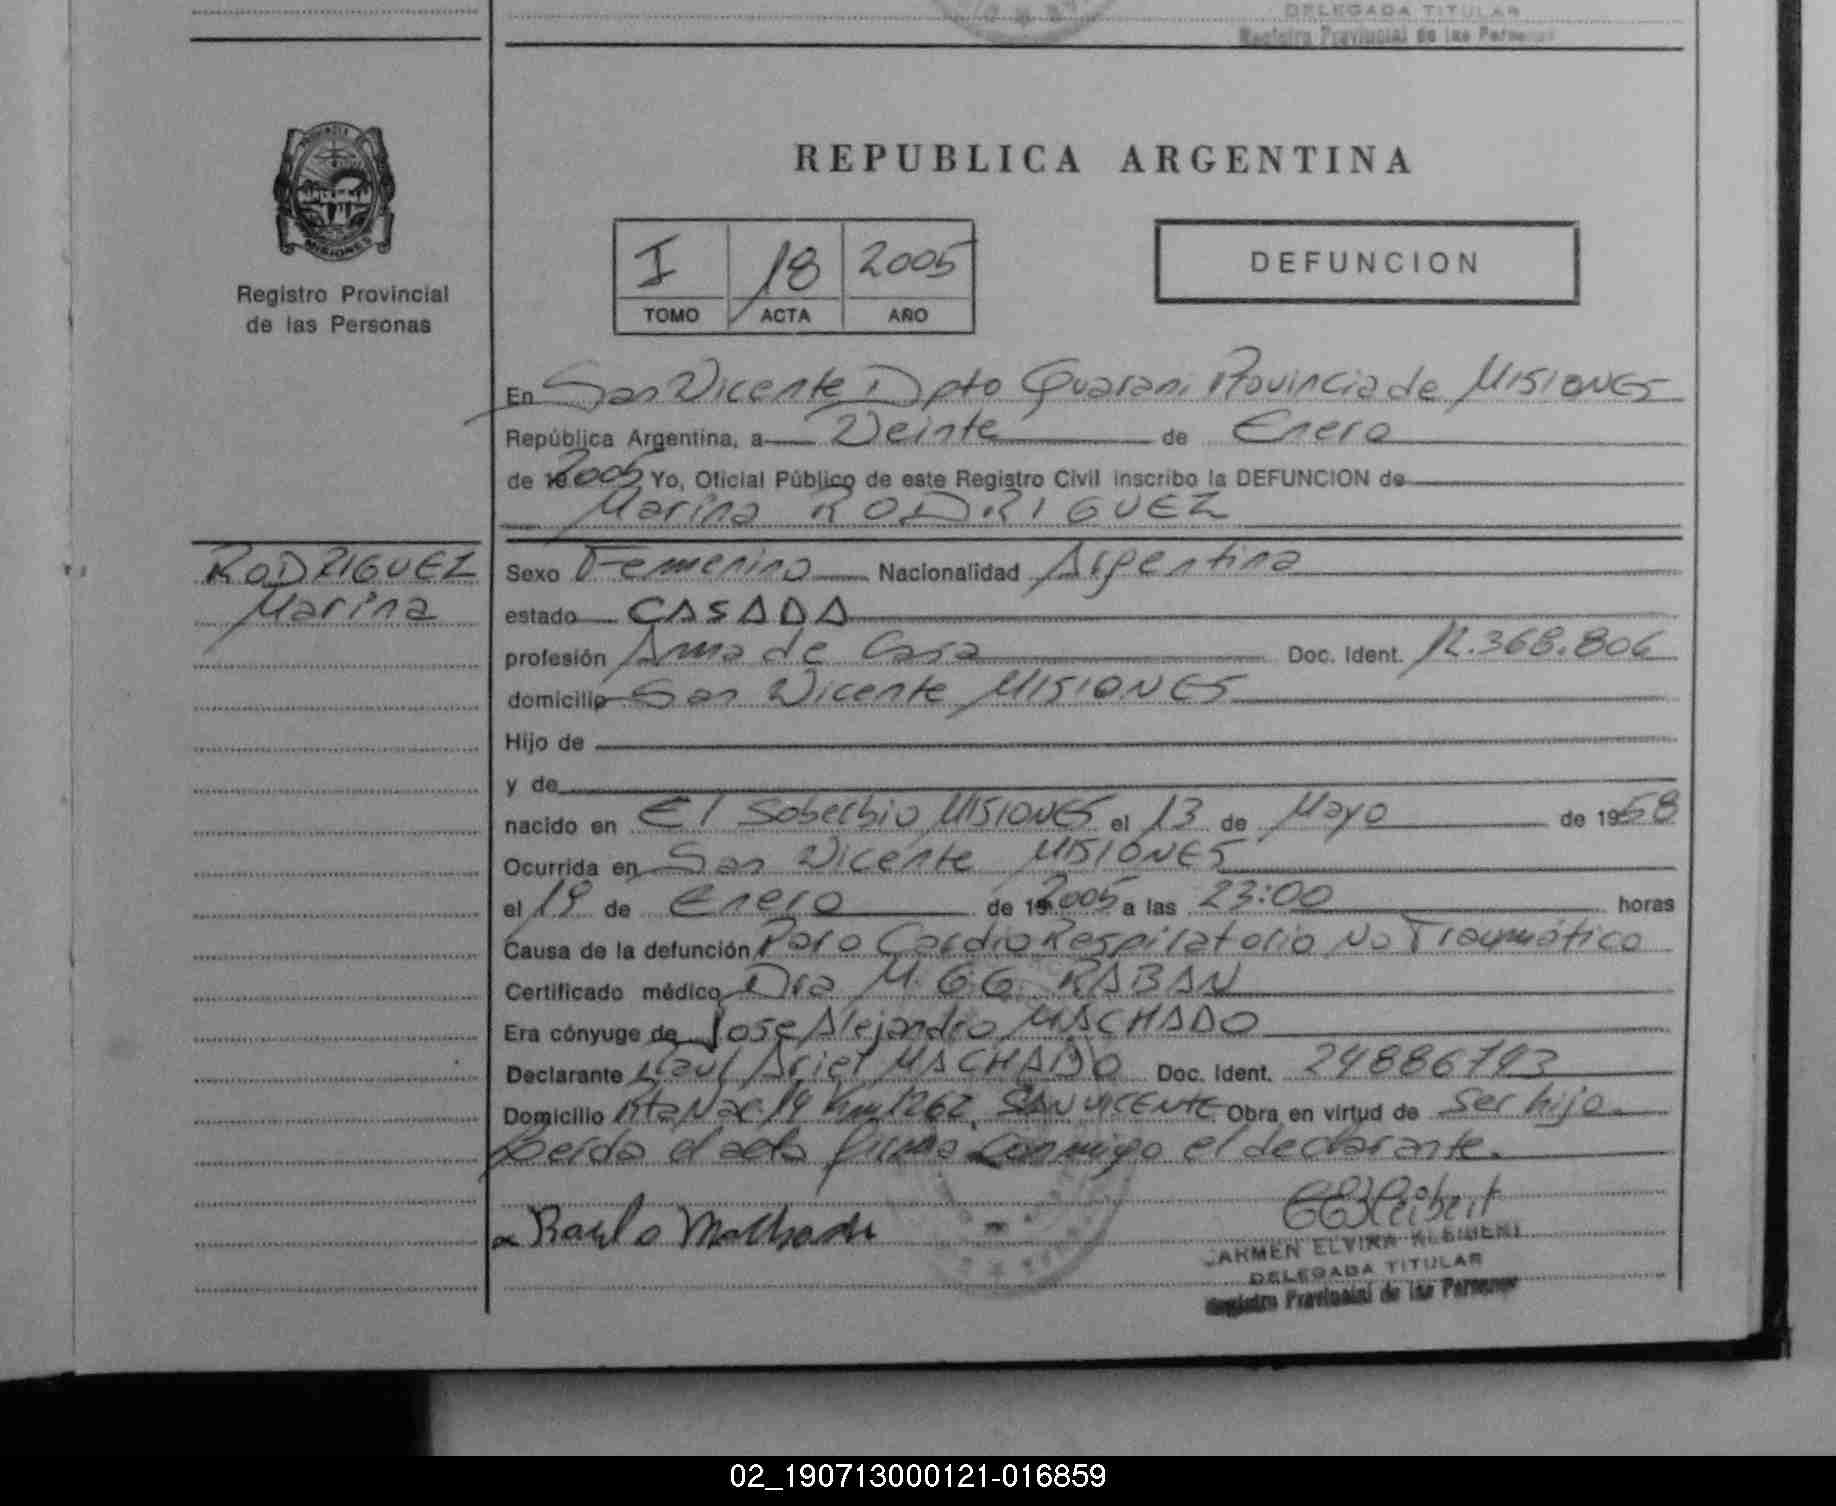 DELEGADA TITULAR
Registro Provincial de las Personas
PROVINCIA
MISIONES
Registro Provincial
de las Personas
REPUBLICA ARGENTINA
I 18 2005
TOMO ACTA AÑO
DEFUNCION
En San Vicente Dpto Guarani Provincia de MISIONES
República Argentina, a Veinte de Enero
de 2005 Yo, Oficial Público de este Registro Civil inscribo la DEFUNCION de
Marina RODRIGUEZ
RODRIGUEZ
Marina
Sexo Femenino Nacionalidad Argentina
estado CASADA
profesión Ama de Casa Doc. Ident. 12.368.806
domicilio San Vicente MISIONES
Hijo de
y de
nacido en El Soberbio MISIONES el 13 de Mayo de 1958
Ocurrida en San Vicente MISIONES
el 19 de Enero de 2005 a las 23:00 horas
Causa de la defunción Paro Cardio Respiratorio No Traumático
Certificado médico Dra M. G.G. RABAN
Era cónyuge de Jose Alejandro MACHADO
Declarante Raul Ariel MACHADO Doc. Ident. 24886793
Domicilio Rta Nac. 14 Km 1262, SAN VICENTE Obra en virtud de Ser hijo.
Leida el acta firma conmigo el declarante.
Raulo Machado
CARMEN ELVIRA KLEIBERT
DELEGADA TITULAR
Registro Provincial de las Personas
02_190713000121-016859